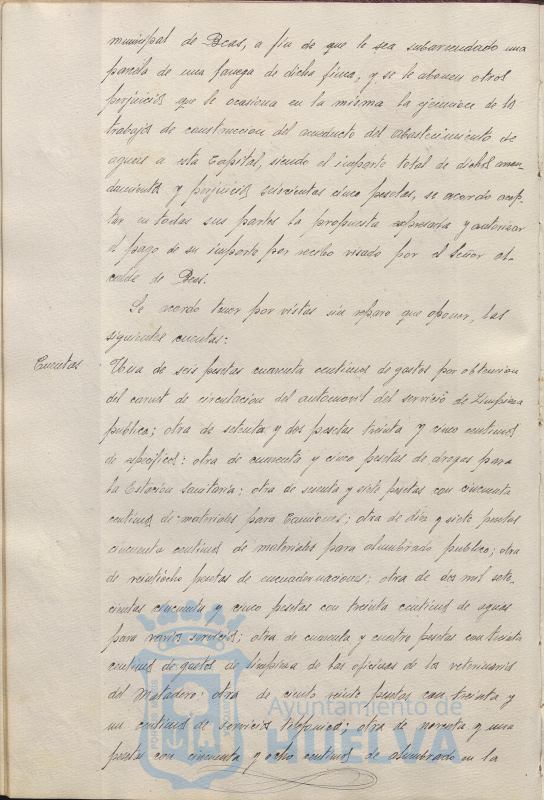 municipal de Beas, a fin de que le sea subarrendado una
parcela de una fanega de dicha finca, y se le abonen otros
perjuicios que le ocasiona en la misma la ejecucion de los
trabajos de construccion del acueducto del abastecimiento de
aguas a esta Capital, siendo el importe total de dichos arren-
damientos y perjuicios seiscientas cinco pesetas, se acordo acep-
tar en todas sus partes la propuesta expresada y autorizar
el pago de su importe por recibo visado por el Señor Al-
calde de Beas.
Se acordo tener por vistas sin reparo que oponer, las
siguientes cuentas:
Cuentas
Una de seis pesetas cuarenta centimos de gastos por obtencion
del carnet de circulacion del automovil del servicio de Limpieza
publica; otra de setenta y dos pesetas treinta y cinco centimos
de especificos: otra de cuarenta y cinco pesetas de drogas para
la Estacion Sanitaria; otra de sesenta y siete pesetas con cincuenta
centimos de materiales para Camiones; otra de diez y siete pesetas
cincuenta centimos de materiales para alumbrado publico; otra
de veintiocho pesetas de encuadernaciones; otra de dos mil sete-
cientas cincuenta y cinco pesetas con treinta centimos de aguas
para varios servicios; otra de cuarenta y cuatro pesetas con treinta
centimos de gastos de limpieza de las oficinas de los veterinarios
del Matadero; otra de ciento veinte pesetas con treinta y
un centimos de servicio telefonico; otra de noventa y una
peseta con cincuenta y ocho centimos de alumbrado en la
Ayuntamiento de
HUELVA